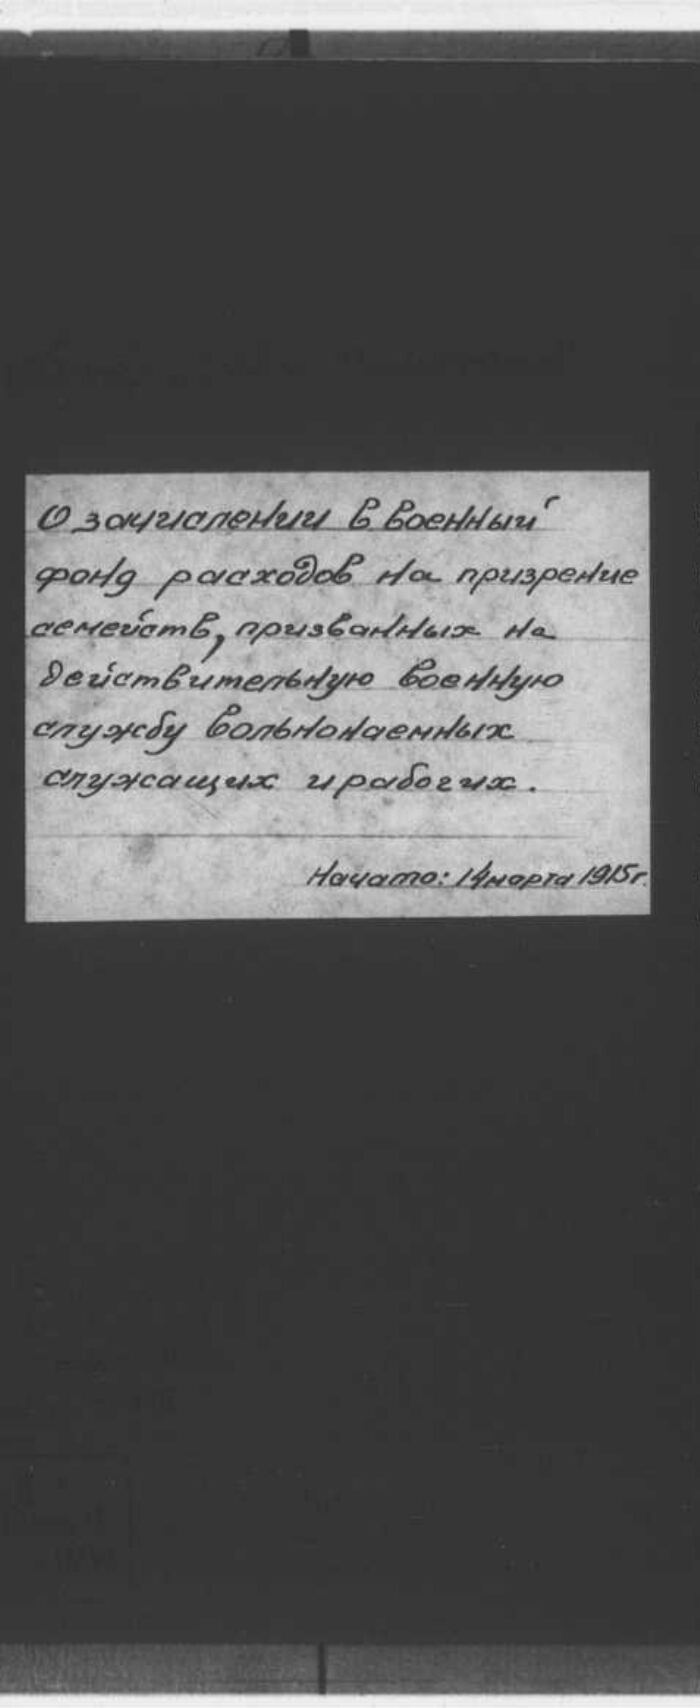 О зачислении в военный
фонд расходов на призрение
семейств, призванных на
действительную военную
службу вольнонаемных
служащих и рабочих.
Начато: 14 марта 1915 г.